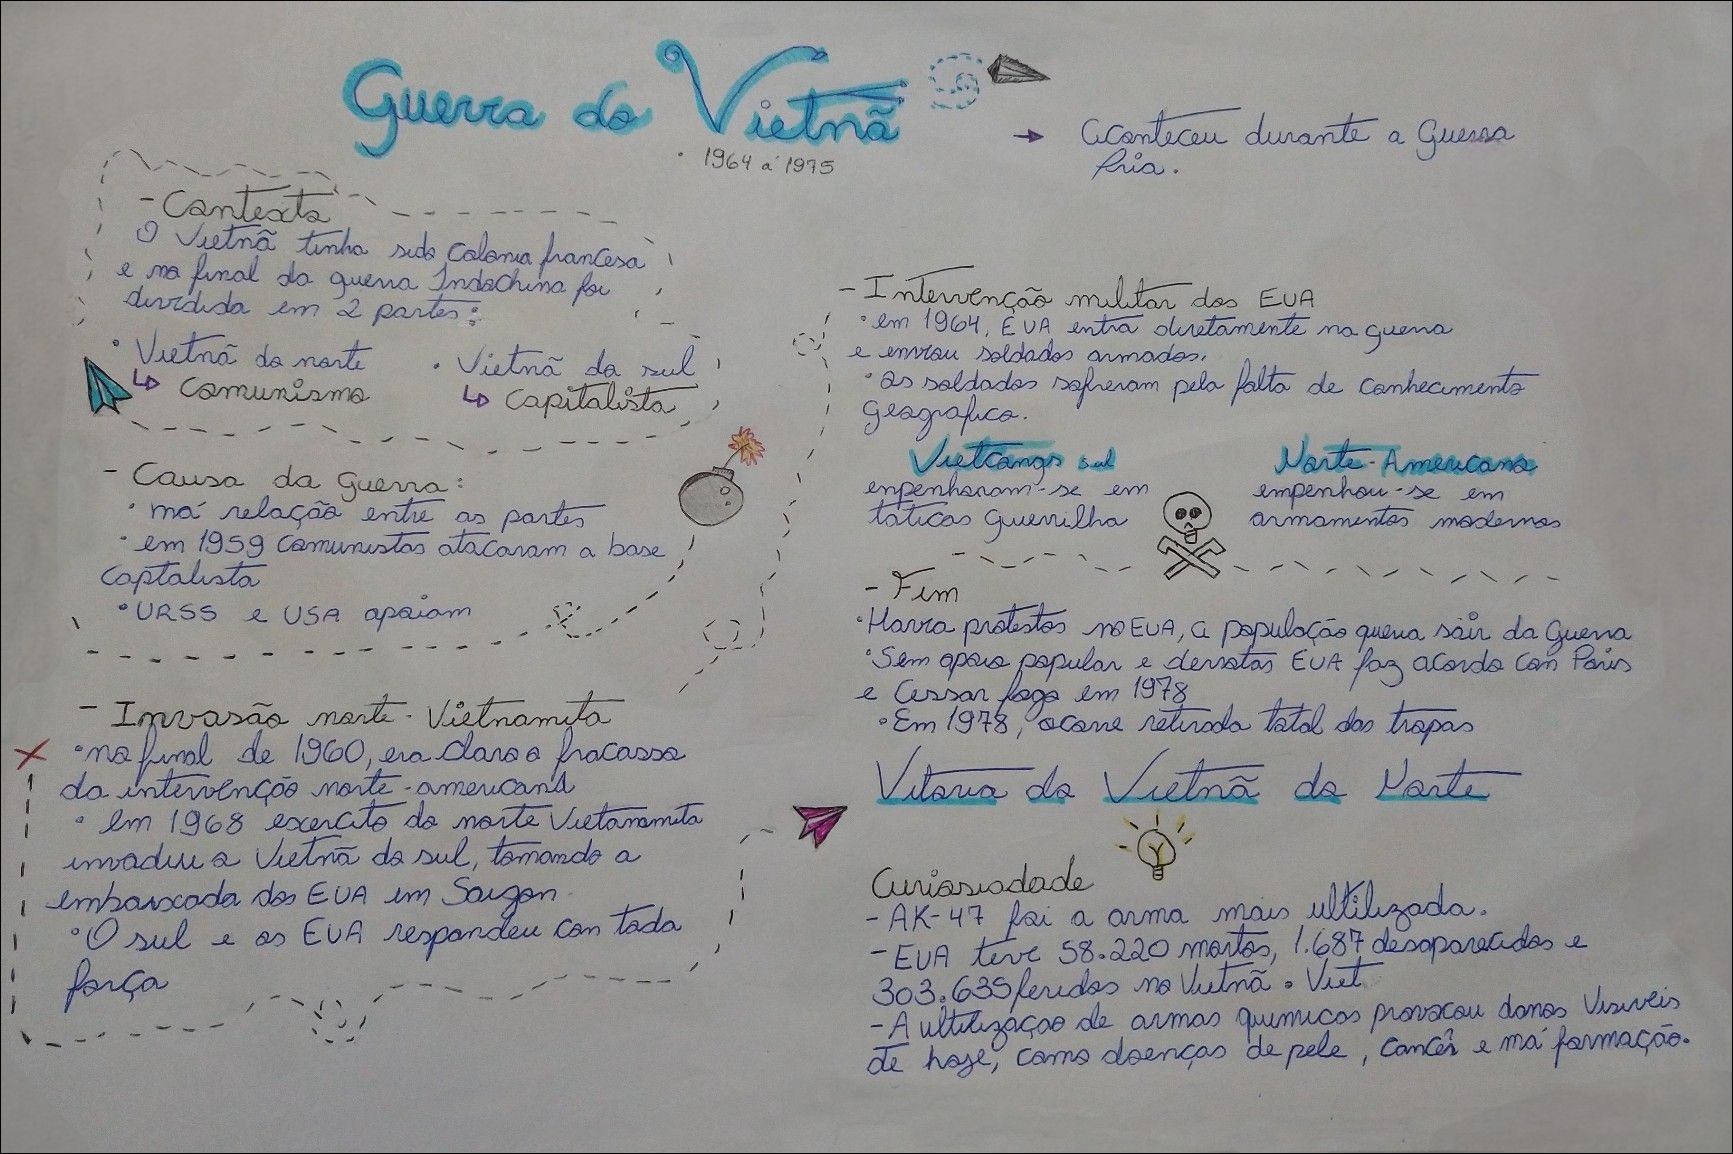 Guerra do Vietnã
• 1964 a 1975
→ Aconteceu durante a Guerra
fria.
- Contexto
O Vietnã tinha sido colonia francesa
e no final da guerra Indochina foi
dividida em 2 partes:
• Vietnã do norte
↳ Comunismo
• Vietnã do sul
↳ Capitalista
- Causa da Guerra:
• má relação entre as partes
• em 1959 comunistas atacaram a base
captalista
• URSS e USA apoiam
- Invasão norte-Vietnamita
• no final de 1960, era claro o fracasso
da intervenção norte-americana
• Em 1968 exercito do norte Vietanamita
invadiu o Vietnã do sul, tomando a
embaixada dos EUA em Saigon.
• O sul e os EUA respondeu con toda
força
- Intervenção militar dos EUA
• em 1964, EUA entra diretamente na guerra
e enviou soldados armados.
• os soldados sofreram pela falta de conhecimento
Geografico.
Vietcongs sul
enpenharam-se em
táticas Guerrilha
Norte-Americano
empenhou-se em
armamentos modernos
- Fim
• Havia protestos no EUA, a população queria sair da Guerra
• Sem apoio popular e derrotas EUA faz acordo con Paris
e Cessar fogo em 1978
• Em 1978, ocorre retirada total das tropas
Vitória do Vietnã do Norte
Curiosiodade
- AK-47 foi a arma mais ultilizada.
- EUA teve 58.220 mortos, 1.687 desaparecidos e
303.635 feridos no Vietnã. Viet
- A ultilizaçao de armas quimicas provocou danos Visiveis
de hoje, como doenças de pele, cancêr e má formação.